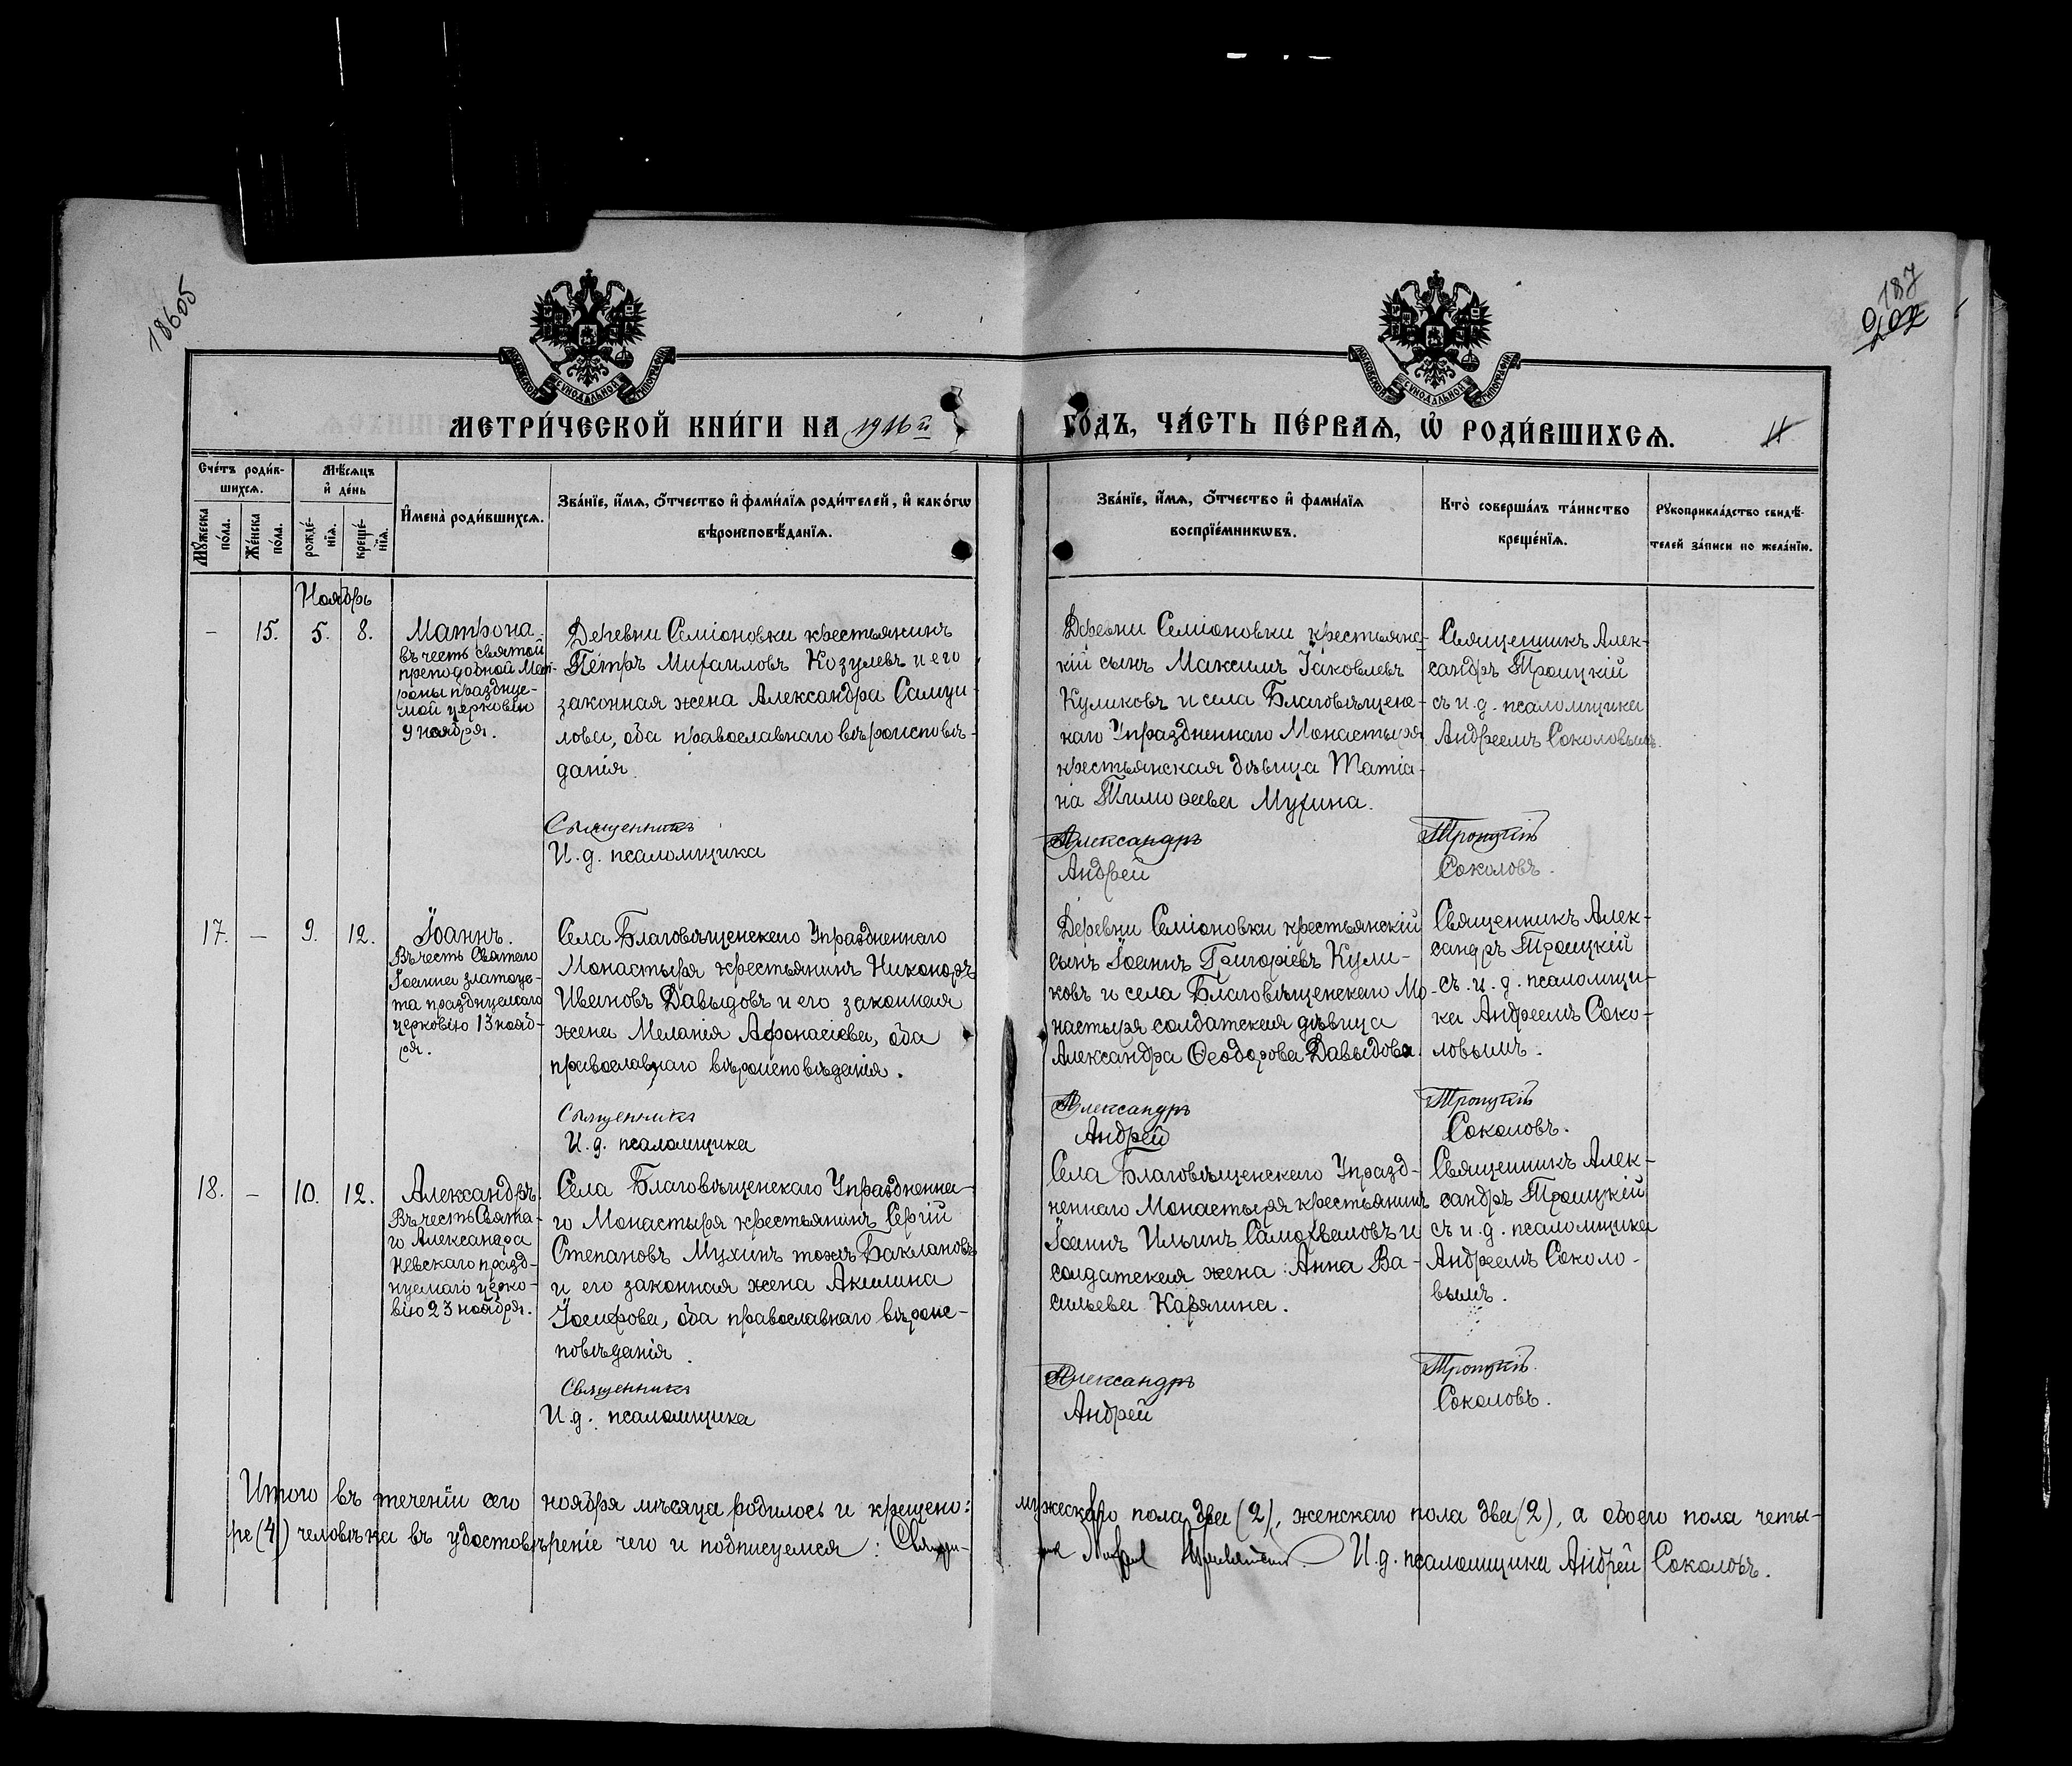 18605
187
202
МОСКОВСКОЙ СѴНОДАЛЬНОЙ ТИПОГРАФІИ
МОСКОВСКОЙ СѴНОДАЛЬНОЙ ТИПОГРАФІИ
МЕТРИ́ЧЕСКОЙ КНИ́ГИ НА 1916й
ГО́ДЪ, ЧА́СТЬ ПЕ́РВАѦ, Ѡ҆ РОДИ́ВШИХСѦ.
Сче́тъ роди́в-
шихсѧ.
Мꙋ́жеска по́ла.
Же́нска по́ла.
Мѣ́сѧцъ
и҆ де́нь
рожде́-
нїѧ.
креще́-
нїѧ.
И҆мена̀ роди́вшихсѧ.
Зва́нїе, и҆́мѧ, ѻ҆́тчество и҆ фами́лїѧ роди́телей, и҆ како́гѡ
вѣроисповѣ́данїѧ.
Зва́нїе, и҆́мѧ, ѻ҆́тчество и҆ фами́лїѧ
воспрїе́мникѡвъ.
Кто̀ соверша́лъ та́инство
креще́нїѧ.
Рꙋкоприкла́дство свидѣ́-
телей за́писи по жела́нїю.
Ноябрь
— 15. 5. 8.
Матрона
въ честь святой
преподобной Мат-
роны празднуе-
мой церковiю
9 ноября.
Деревни Семiоновки крестьянинъ
Петръ Михаиловъ Козулевъ и его
законная жена Александра Самуи-
лова, оба православнаго вѣроисповѣ-
данiя.
Деревни Семiоновки крестьянс-
кiй сынъ Максимъ Iаковлевъ
Куликовъ и села Благовѣщенс-
каго Упраздненнаго Монастыря
крестьянская дѣвица Татiа-
на Тимоѳеева Мухина.
Священникъ Алек-
сандръ Троицкiй
съ и.д. псаломщика
Андреемъ Соколовымъ.
Священникъ Александръ Троицкiй
И.д. псаломщика Андрей Соколовъ.
17. — 9. 12.
Iоаннъ.
Въ честь Святаго
Iоанна златоус-
та празднуемаго
церковiю 13 нояб-
ря.
Села Благовѣщенскаго Упраздненнаго
Монастыря крестьянинъ Никоноръ
Ивановъ Давыдовъ и его законная
жена Меланiя Афонасiева, оба
православнаго вѣроисповѣданiя.
Деревни Семiоновки крестьянскiй
сынъ Iоаннъ Григорiевъ Кули-
ковъ и села Благовѣщенскаго Мо-
настыря солдатская дѣвица
Александра Ѳеодорова Давыдова.
Священникъ Алек-
сандръ Троицкiй
съ и.д. псаломщи-
ка Андреемъ Соко-
ловымъ.
Священникъ Александръ Троицкiй
И.д. псаломщика Андрей Соколовъ.
18. — 10. 12.
Александръ.
Въ честь Свята-
го Александра
Невскаго празд-
нуемаго церко-
вiю 23 ноября.
Села Благовѣщенскаго Упраздненна-
го Монастыря крестьянинъ Сергiй
Степановъ Мухинъ тожъ Баклановъ
и его законная жена Акилина
Iосифова, оба православнаго вѣроис-
повѣданiя.
Села Благовѣщенскаго Упразд-
неннаго Монастыря крестьянинъ
Iоаннъ Ильинъ Самохваловъ и
солдатская жена Анна Ва-
сильева Карягина.
Священникъ Алек-
сандръ Троицкiй
съ и.д. псаломщика
Андреемъ Соколо-
вымъ.
Священникъ Александръ Троицкiй.
И.д. псаломщика Андрей Соколовъ.
Итого въ теченiи сего ноября мѣсяца родилось и крещено: мужескаго пола два (2), женскаго пола два (2), а обоего пола четы-
ре (4) человѣка въ удостовѣренiе чего и подписуемся: И.д. псаломщика Андрей Соколовъ.